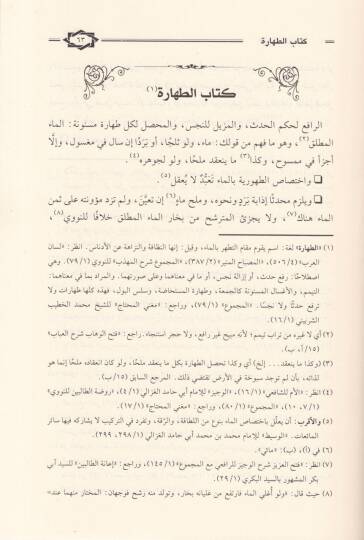 كتاب الطهارة
٦٣
كتاب الطهارة(١)
الرافع لحكم الحدث، والمزيل للنجس، والمحصل لكل طهارة مسنونة: الماء
المطلق(٢)، وهو ما فهم من قولك: ماء، ولو ثلجًا، أو بَرَدًا إن سال في مغسول، وإلَّا
أجزأ في ممسوح، وكذا(٣) ما ينعقد ملحًا، ولو لجوهره(٤).
❑ واختصاص الطهورية بالماء تَعَبُّدٌ لا يُعقل(٥).
❑ ويلزم محدثًا إذابة بَرَدٍ ونحوه، وملح ماءٍ(٦) إن تعيَّن، ولم تزد مؤونته على ثمن
الماء هناك(٧)، ولا يجزئ المترشح من بخار الماء المطلق خلافًا للنووي(٨)،
(١) «الطهارة» لغة: اسم يقوم مقام التطهر بالماء، وقيل: إنها النظافة والنزاهة عن الأدناس. انظر: «لسان
العرب» (٥٠٦/٤)، «المصباح المنير» (٣٨٧/٢)، «المجموع شرح المهذب» للنووي (٧٩/١). وهي
اصطلاحًا: رفع حدث، أو إزالة نجس، أو ما في معناهما وعلى صورتهما. والمراد بما في معناهما:
التيمم، والأغسال المسنونة كالجمعة، وطهارة المستحاضة، وسلس البول، فهذه كلها طهارات ولا
ترفع حدثًا ولا نجسًا. «المجموع» (٧٩/١)، وراجع: «مغني المحتاج» للشيخ محمد الخطيب
الشربيني (١٦/١).
(٢) أي لا غيره من تراب تيمم؛ لأنه مبيح غير رافع، ولا حجر استنجاء. راجع: «فتح الوهاب شرح العباب»
(١٥/أ، ب).
(٣) (وكذا ما ينعقد... إلخ) أي وكذا تحصل الطهارة بكل ما ينعقد ملحًا، ولو كان انعقاده ملحًا إنما هو
لذاته، بأن لم توجد سبوخة في الأرض تقتضي ذلك. المرجع السابق (١٥/ب).
(٤) انظر: «الأم للشافعي» (١٦/١)، «الوجيز» للإمام أبي حامد الغزالي (٤/١)، «روضة الطالبين للنووي»
(٧/١، ١٠)، «المجموع» (٨٠/١)، وراجع: «مغني المحتاج» (١٧/١).
(٥) والأقرب: أن يعلَّل باختصاص الماء بنوع من اللطافة، والرِّقة، وتفرد في التركيب لا يشاركه فيها سائر
المائعات. «الوسيط» للإمام محمد بن محمد أبي حامد الغزالي (٢٩٨/١، ٢٩٩).
(٦) في (أ)، (ب): «مائي».
(٧) انظر: «فتح العزيز شرح الوجيز للرافعي مع المجموع» (١٤٥/١)، وراجع: «إعانة الطالبين» للسيد أبي
بكر المشهور بالسيد البكري (٢٩/١).
(٨) حيث قال: «ولو أغلي الماء فارتفع من غليانه بخار، وتولد منه رشح فوجهان: المختار منهما عند»